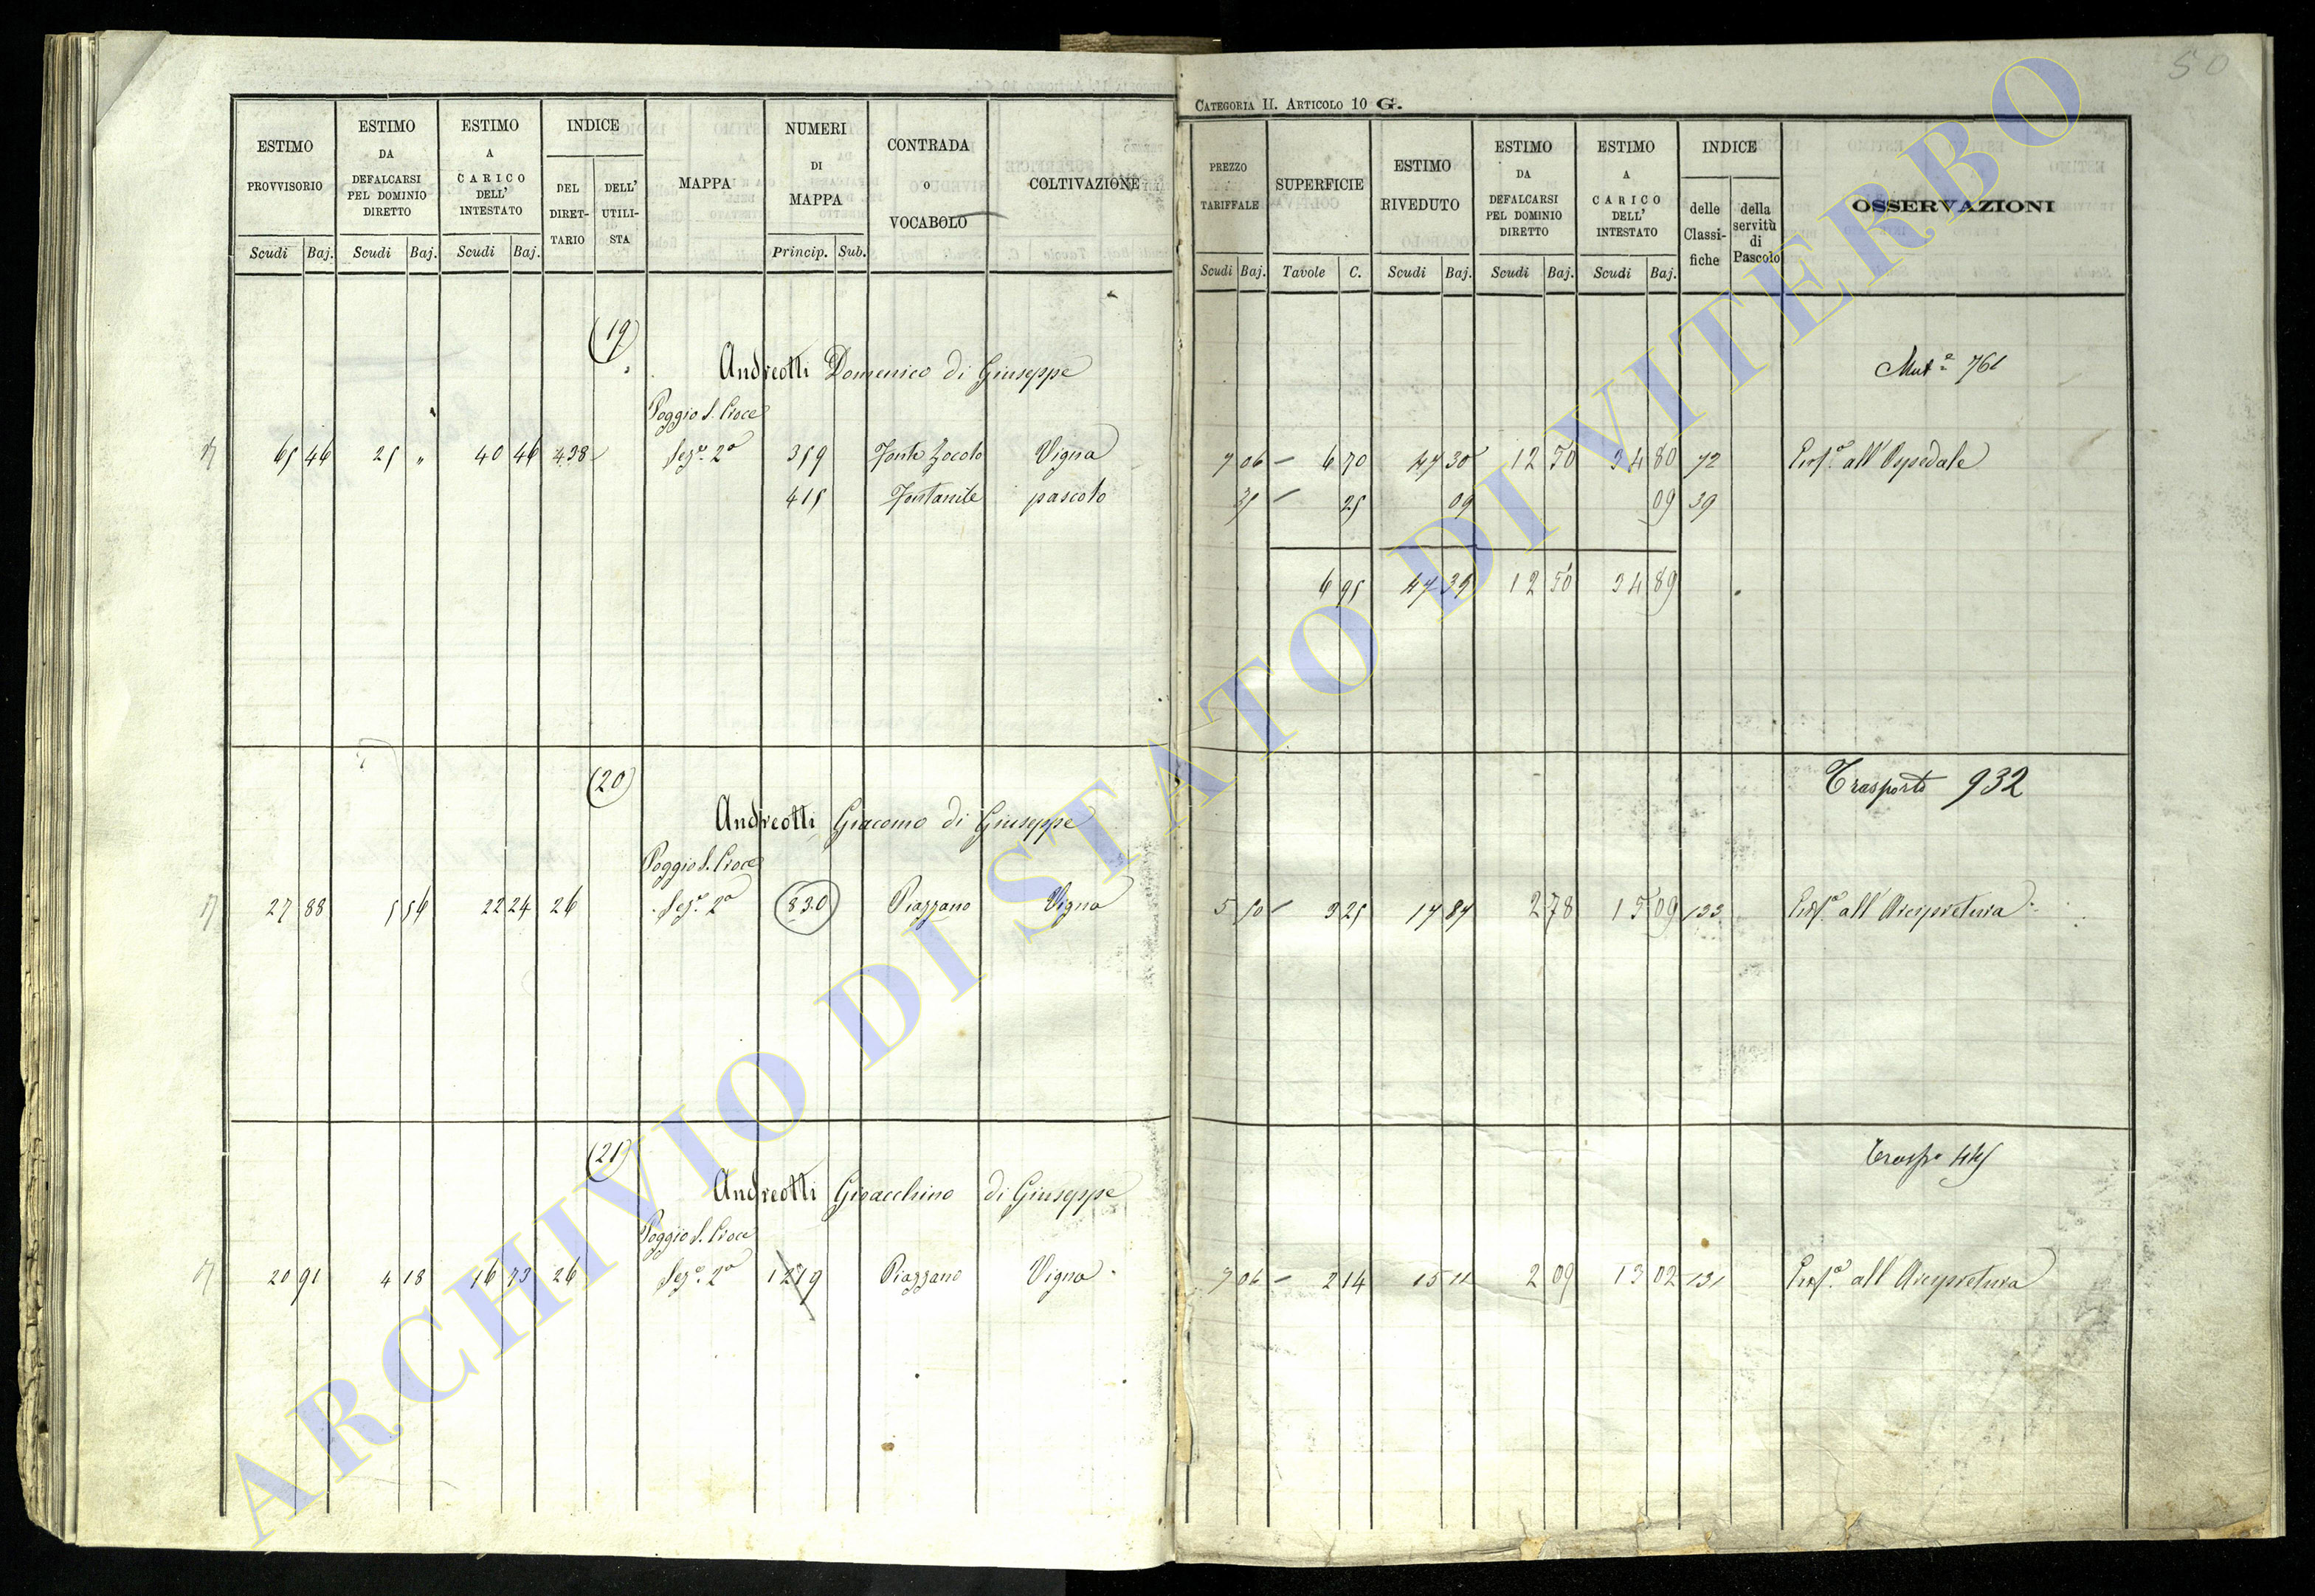 50
CATEGORIA II. ARTICOLO 10 G.
ESTIMO PROVVISORIO Scudi Baj.
ESTIMO DA DEFALCARSI PEL DOMINIO DIRETTO Scudi Baj.
ESTIMO A CARICO DELL' INTESTATO Scudi Baj.
INDICE DEL DIRETTARIO DELL' UTILISTA
MAPPA
NUMERI DI MAPPA Princip. Sub.
CONTRADA o VOCABOLO
COLTIVAZIONE
PREZZO TARIFFALE Scudi Baj.
SUPERFICIE Tavole C.
ESTIMO RIVEDUTO Scudi Baj.
ESTIMO DA DEFALCARSI PEL DOMINIO DIRETTO Scudi Baj.
ESTIMO A CARICO DELL' INTESTATO Scudi Baj.
INDICE delle Classifiche della servitù di Pascolo
OSSERVAZIONI
(19)
Andreotti Domenico di Giuseppe
Mut.e 761
Poggio S. Croce
65 46 25 „ 40 46 438 Sez.e 2a 359 Vigna 7 06 6 70 47 30 12 50 34 80 72 all'Ospedale
415 Fontanile pascolo 35 25 09 09 39
6 95 47 39 12 50 34 89
(20)
Andreotti Giacomo di Giuseppe
Trasporto 932
Poggio S. Croce
27 88 5 56 22 24 26 Sez.e 2a 830 Piazzano Vigna 5 50 3 25 17 87 2 78 15 09 133 all'Arcipretura
(21)
Andreotti Gioacchino di Giuseppe
Poggio S. Croce
20 91 4 18 16 73 26 Sez.e 2a 1279 Piazzano Vigna 7 06 2 14 15 11 2 09 13 02 131 all'Arcipretura
ARCHIVIO DI STATO DI VITERBO